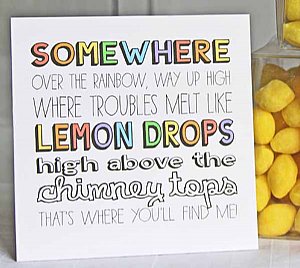 SOMEWHERE
OVER THE RAINBOW, WAY UP HIGH
WHERE TROUBLES MELT LIKE
LEMON DROPS
high above the
chimney tops
THAT'S WHERE YOU'LL FIND ME!